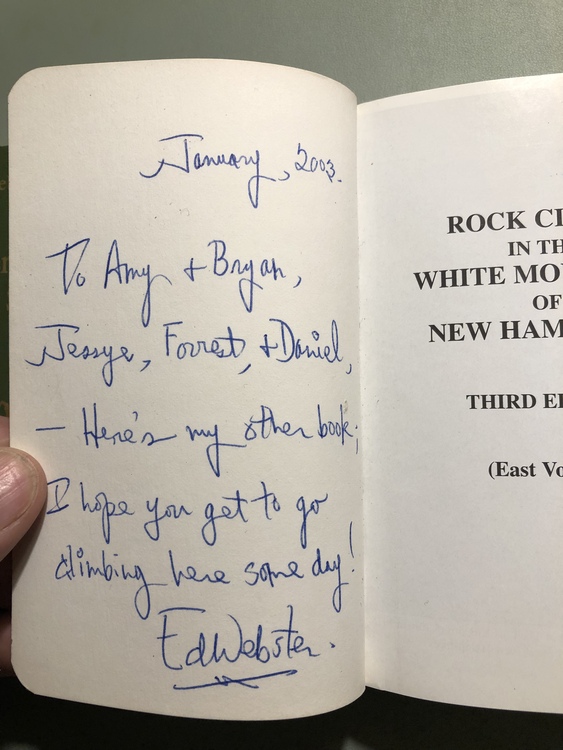 January, 2003.
To Amy + Bryan,
Jessye, Forrest, + Daniel,
— Here's my other book;
I hope you get to go
climbing here some day!
Ed Webster.
ROCK CL
IN TH
WHITE MOU
OF
NEW HAM
THIRD ED
(East Vo